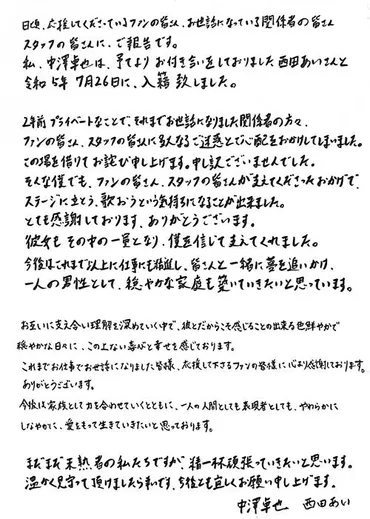 日頃、応援してくださっているファンの皆さん、お世話になっている関係者の皆さん
スタッフの皆さんに、ご報告です。
私、中澤卓也は、予てよりお付き合いをしておりました西田あいさんと
令和5年7月26日に、入籍致しました。
2年前プライベートなことで、それまでお世話になりました関係者の方々、
ファンの皆さん、スタッフの皆さんに多大なるご迷惑とご心配をおかけしてしまいました。
この場を借りてお詫び申し上げます。申し訳ございませんでした。
そんな僕でも、ファンの皆さん、スタッフの皆さんが支えてくださったおかげで、
ステージに立とう、歌おうという気持ちになることが出来ました。
とても感謝しております。ありがとうございます。
彼女も その中の一員となり、僕を信じて支えてくれました。
今後はこれまで以上に仕事にも精進し、皆さんと一緒に夢を追いかけ、
一人の男性として、穏やかな家庭も築いていきたいと思っています。
お互いに支え合い理解を深めていく中で、彼とだからこそ感じることの出来る色鮮やかで
穏やかな日々に、この上ない喜びと幸せを感じております。
これまでお仕事でお世話になりました皆様、応援して下さるファンの皆様に心より感謝しております。
ありがとうございます。
今後は家族として力を合わせていくとともに、一人の人間としても表現者としても、やわらかに
しなやかに、愛をもって生きていきたいと思っております。
まだまだ未熟者の私たちですが、精一杯頑張っていきたいと思います。
温かく見守って頂けましたら幸いです。今後とも宜しくお願い申し上げます。
中澤卓也 西田あい